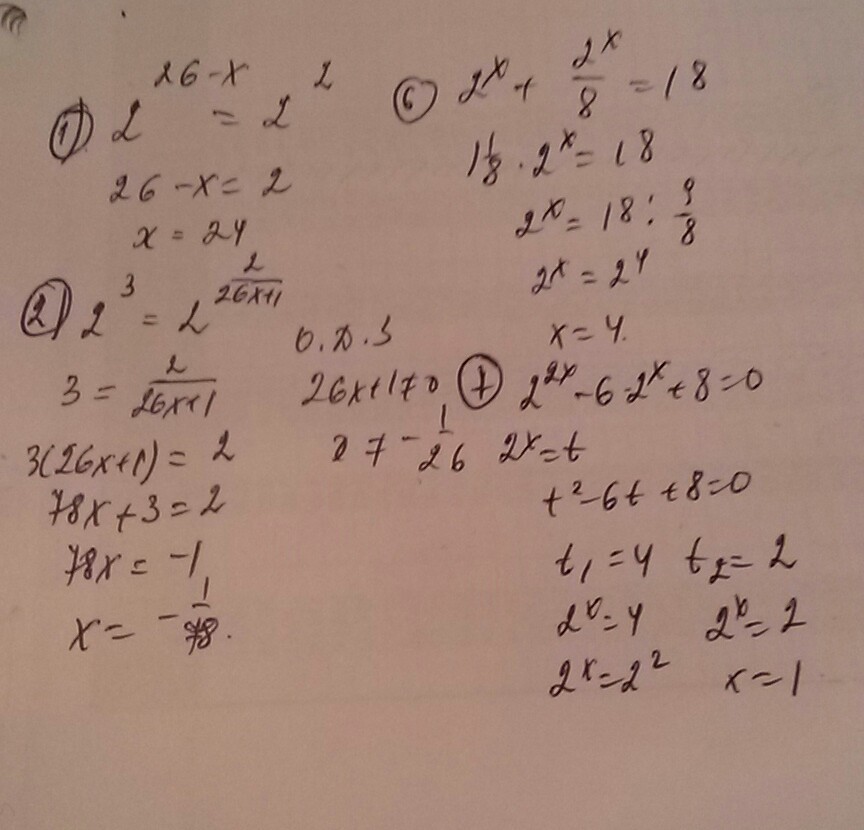 ① 2^(26-x) = 2^2
26-x = 2
x = 24
② 2^3 = 2^(2/(26x+1))
3 = 2/(26x+1)
3(26x+1) = 2
78x+3 = 2
78x = -1
x = -1/78.
О.Д.З
26x+1≠0
x ≠ -1/26
⑥ 2^x + 2^x/8 = 18
1 1/8 · 2^x = 18
2^x = 18 : 9/8
2^x = 2^4
x = 4.
⑦ 2^(2x) - 6·2^x + 8 = 0
2^x = t
t^2 - 6t + 8 = 0
t₁ = 4 t₂ = 2
2^x = 4 2^x = 2
2^x = 2^2 x = 1